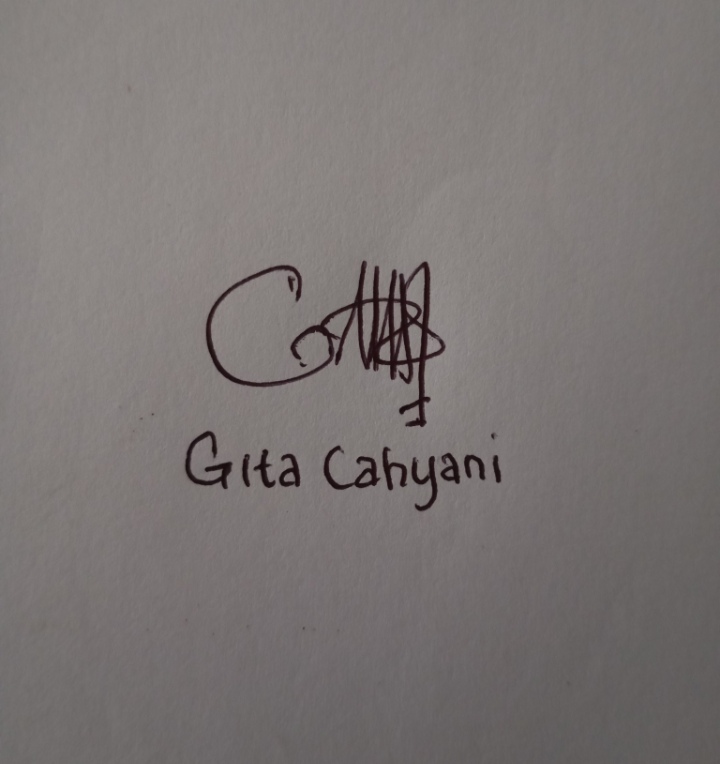 Gita Cahyani